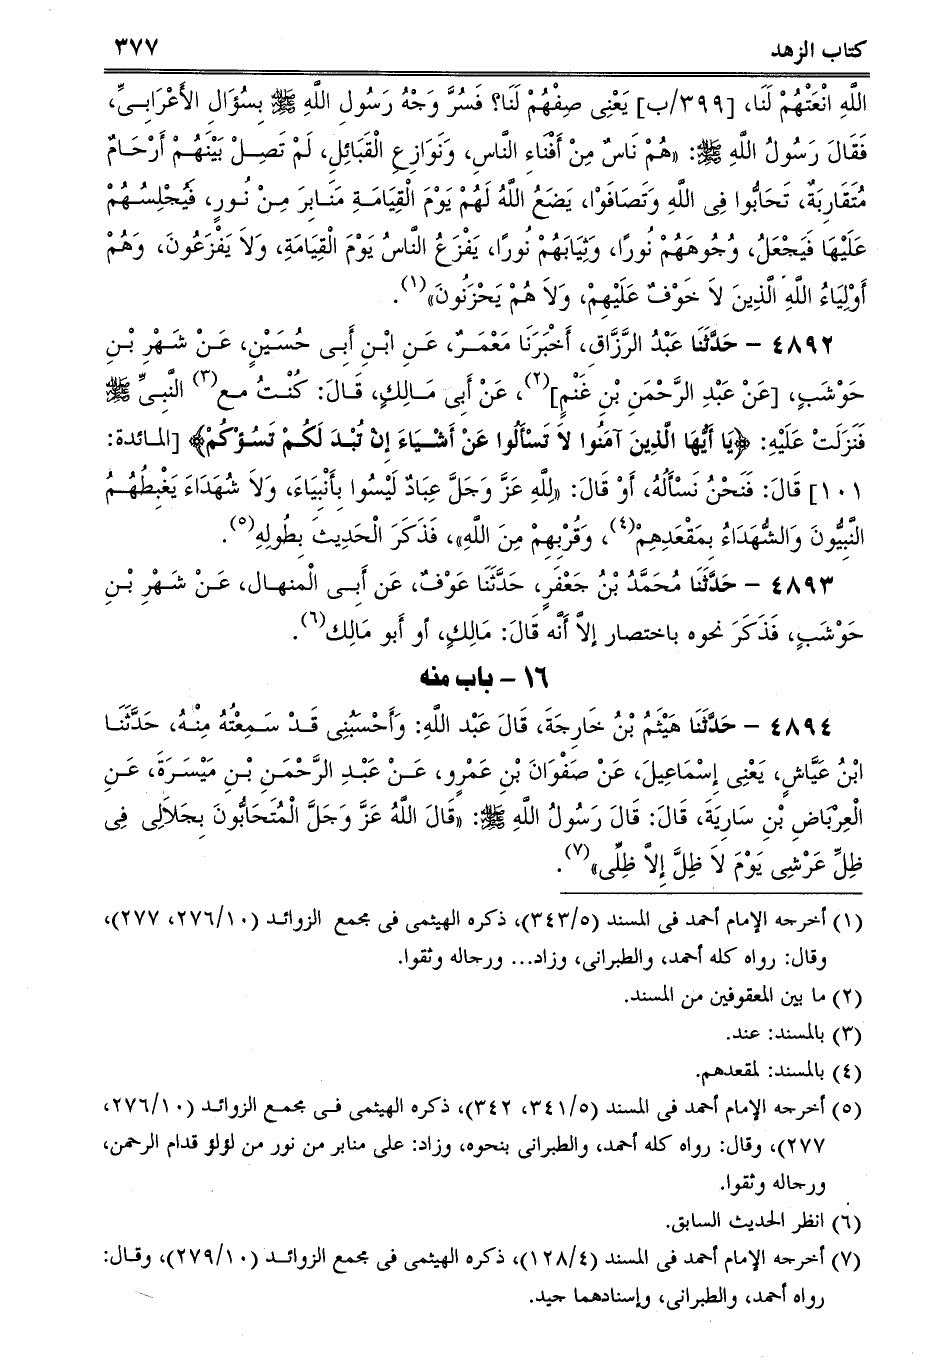 كتاب الزهد ٣٧٧
اللَّهِ انْعَتْهُمْ لَنَا، [٣٩٩/ب] يَعْنِى صِفْهُمْ لَنَا؟ فَسُرَّ وَجْهُ رَسُولِ اللَّهِ ﷺ بِسُؤَالِ الأَعْرَابِىِّ،
فَقَالَ رَسُولُ اللَّهِ ﷺ: «هُمْ نَاسٌ مِنْ أَفْنَاءِ النَّاسِ، وَنَوَازِعِ الْقَبَائِلِ، لَمْ تَصِلْ بَيْنَهُمْ أَرْحَامٌ
مُتَقَارِبَةٌ، تَحَابُّوا فِى اللَّهِ وَتَصَافَوْا، يَضَعُ اللَّهُ لَهُمْ يَوْمَ الْقِيَامَةِ مَنَابِرَ مِنْ نُورٍ، فَيُجْلِسُهُمْ
عَلَيْهَا فَيَجْعَلُ، وُجُوهَهُمْ نُورًا، وَثِيَابَهُمْ نُورًا، يَفْزَعُ النَّاسُ يَوْمَ الْقِيَامَةِ، وَلاَ يَفْزَعُونَ، وَهُمْ
أَوْلِيَاءُ اللَّهِ الَّذِينَ لاَ خَوْفٌ عَلَيْهِمْ، وَلاَ هُمْ يَحْزَنُونَ»(١).
٤٨٩٢ - حَدَّثَنَا عَبْدُ الرَّزَّاقِ، أَخْبَرَنَا مَعْمَرٌ، عَنِ ابْنِ أَبِى حُسَيْنٍ، عَنْ شَهْرِ بْنِ
حَوْشَبٍ، [عَنْ عَبْدِ الرَّحْمَنِ بْنِ غَنْمٍ](٢)، عَنْ أَبِى مَالِكٍ، قَالَ: كُنْتُ مع(٣) النَّبِىِّ ﷺ
فَنَزَلَتْ عَلَيْهِ: ﴿يَا أَيُّهَا الَّذِينَ آمَنُوا لاَ تَسْأَلُوا عَنْ أَشْيَاءَ إِنْ تُبْدَ لَكُمْ تَسُؤْكُمْ﴾ [المائدة:
١٠١] قَالَ: فَنَحْنُ نَسْأَلُهُ، أَوْ قَالَ: «لِلَّهِ عَزَّ وَجَلَّ عِبَادٌ لَيْسُوا بِأَنْبِيَاءَ، وَلاَ شُهَدَاءَ يَغْبِطُهُمُ
النَّبِيُّونَ وَالشُّهَدَاءُ بِمَقْعَدِهِمْ(٤)، وَقُرْبِهِمْ مِنَ اللَّهِ»، فَذَكَرَ الْحَدِيثَ بِطُولِهِ(٥).
٤٨٩٣ - حَدَّثَنَا مُحَمَّدُ بْنُ جَعْفَرٍ، حَدَّثَنَا عَوْفٌ، عَن أَبِى الْمنهال، عَنْ شَهْرِ بْنِ
حَوْشَبٍ، فَذَكَرَ نحوه باختصار إلاَّ أَنَّه قَالَ: مَالِكٍ، أو أبو مَالِك(٦).
١٦ - باب منه
٤٨٩٤ - حَدَّثَنَا هَيْثَمُ بْنُ خَارِجَةَ، قَالَ عَبْد اللَّهِ: وَأَحْسَبُنِى قَدْ سَمِعْتُهُ مِنْهُ، حَدَّثَنَا
ابْنُ عَيَّاشٍ، يَعْنِى إِسْمَاعِيلَ، عَنْ صَفْوَانَ بْنِ عَمْرٍو، عَنْ عَبْدِ الرَّحْمَنِ بْنِ مَيْسَرَةَ، عَنِ
الْعِرْبَاضِ بْنِ سَارِيَةَ، قَالَ: قَالَ رَسُولُ اللَّهِ ﷺ: «قَالَ اللَّهُ عَزَّ وَجَلَّ الْمُتَحَابُّونَ بِجَلاَلِى فِى
ظِلِّ عَرْشِى يَوْمَ لاَ ظِلَّ إِلاَّ ظِلِّى»(٧).
(١) أخرجه الإمام أحمد فى المسند (٣٤٣/٥)، ذكره الهيثمى فى مجمع الزوائد (٢٧٦/١٠، ٢٧٧)،
وقال: رواه كله أحمد، والطبرانى، وزاد... ورجاله وثقوا.
(٢) ما بين المعقوفين من المسند.
(٣) بالمسند: عند.
(٤) بالمسند: لمقعدهم.
(٥) أخرجه الإمام أحمد فى المسند (٣٤١/٥، ٣٤٢)، ذكره الهيثمى فى مجمع الزوائد (٢٧٦/١٠،
٢٧٧)، وقال: رواه كله أحمد، والطبرانى بنحوه، وزاد: على منابر من نور من لؤلؤ قدام الرحمن،
ورجاله وثقوا.
(٦) انظر الحديث السابق.
(٧) أخرجه الإمام أحمد فى المسند (١٢٨/٤)، ذكره الهيثمى فى مجمع الزوائد (٢٧٩/١٠)، وقال:
رواه أحمد، والطبرانى، وإسنادهما جيد.